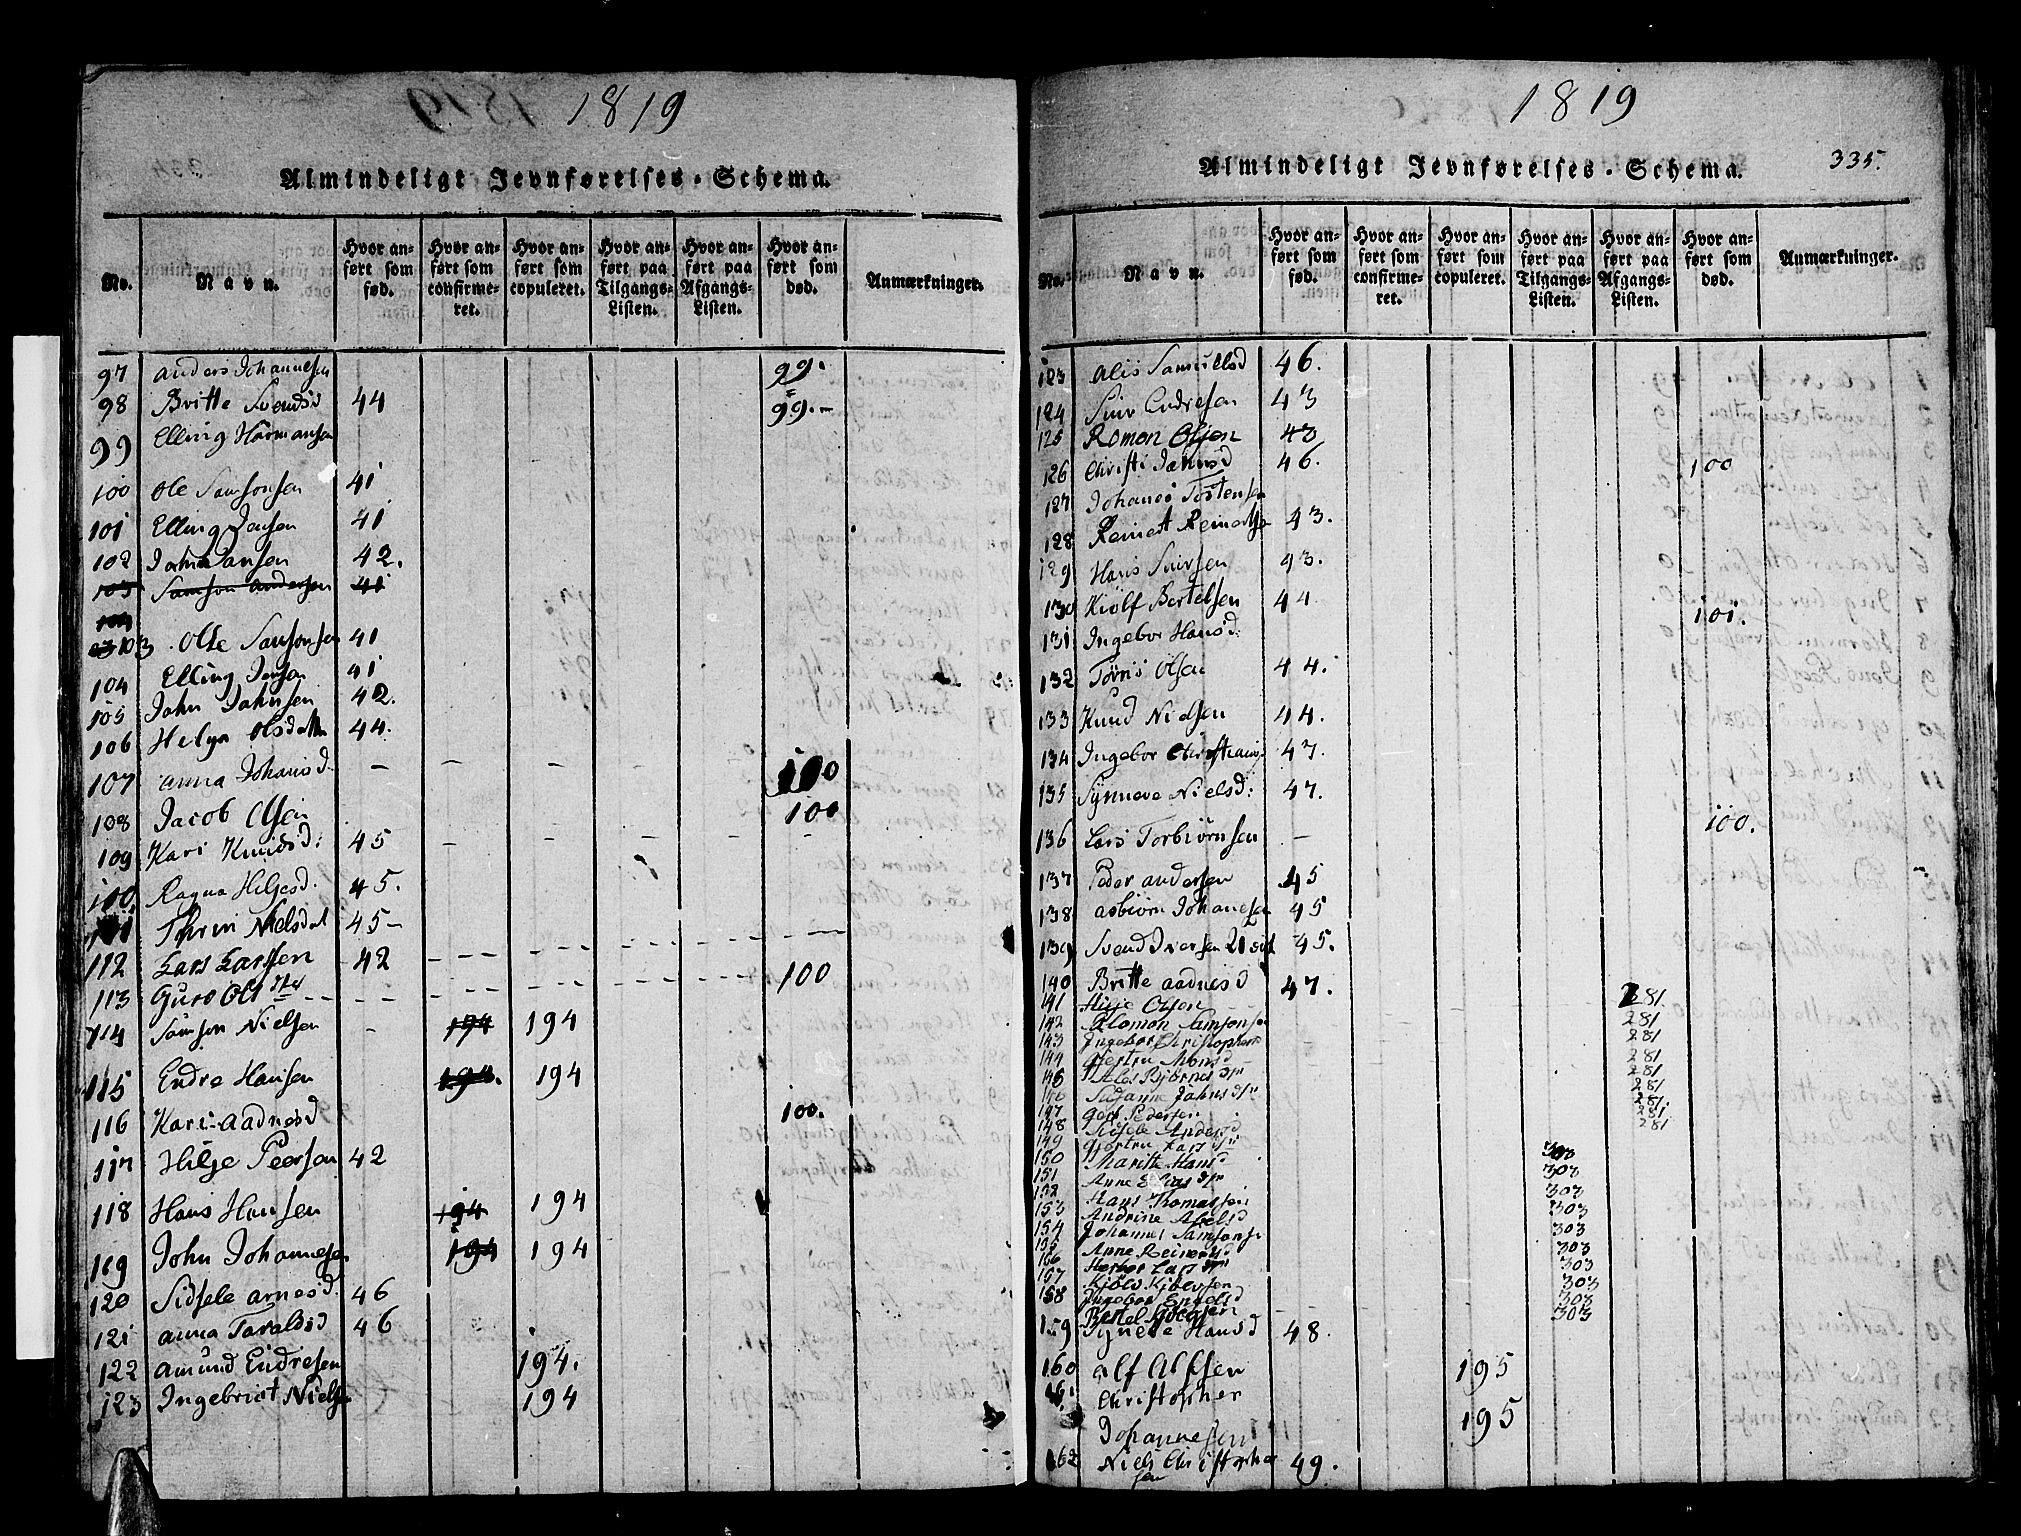 1819
Almindeligt Jevnførelses-Schema.
No. Navn. Hvor anført som fød. Hvor anført som confirmeret. Hvor anført som copuleret. Hvor anført paa Tilgangs-Listen. Hvor anført paa Afgangs-Listen. Hvor anført som død. Anmærkninger.
97 Anders Johannesen 99.
98 Britte Svendsd 44 99.-
99 Elling Hermansen
100 Ole Samsonsen 41
101 Elling Jensen 41
102 John Jansen 42.
103 Samson Andersen 41
104
103 Olle Samsonsen 41
104 Elling Jensen 41
105 John Johnsen 42.
106 Helga Olsdatter 44.
107 Anna Johansd - - - 100
108 Jacob Olsen 100
109 Kari Knudsd: 45 - - - - -
110 Ragna Helgesd. 45.
111 Thrin Nielsdat 45-
112 Lars Larssen 42 - - -
113 Guro Ols dtr - - - 100
114 Samson Nielsen - 194 194
115 Endre Hansen 194. 194
116 Kari Aadnesd 100.
117 Hilge Peersen 42
118 Hans Hansen 194 194
119 John Johannesen 194 194
120 Sidsele Arnesd. 46
121 Anna Taraldsd 46
122 Amund Endresen 194.
123 Ingebrict Nielsen 194
1819
Almindeligt Jevnførelses-Schema. 335.
No. Navn. Hvor anført som fød. Hvor anført som confirmeret. Hvor anført som copuleret. Hvor anført paa Tilgangs-Listen. Hvor anført paa Afgangs-Listen. Hvor anført som død. Anmærkninger.
123 Alis Samuelsd 46.
124 Siur Endresen 43
125 Romon Olsen 43
126 Christi Jahnsd 46. 100
127 Johanes Tostensen
128 Reinert Reinertsen 43.
129 Hans Siursen 43.
130 Kiølf Bertelsen 44
131 Ingebor Hansd: 101.
132 Tørris Olsen 44.
133 Knud Nielsen 44.
134 Ingebor Christians 47.
135 Synneve Nielsd: 47.
136 Lars Torbiørnsen - 100.
137 Peder Andersen 45
138 Asbiørn Johanesen 45
139 Svend Iversen 45.
140 Britte Aadnesd 47.
141 Hilge Olsen 281.
142 Salomon Samsonsen 281
143 Ingebor Christophers 281
144 Gjertru Monsd 281
145 Ales Bjørnes dtr 281
146 Susanne Jahns dtr 281
147 Gert Pedersen 281.
148 Sidsele Andersd 281
149 Gjertru Lars dtr 281
150 Maritte Hansd 303
151 Anne Elias dtr 303
152 Hans Thomassen 303
153 Andrine Abelsd 303
154 Johannes Samsonsen 303
155 Anne Reinertsd 303
156 Herbor Lars dtr 303
157 Kiølv Kiølvsen 303
158 Ingebor Engelsd 303
Bertel Kiølvsen 303
159 Synneve Hansd 48.
160 Alf Alfsen 195
161 Christopher
Johannesen 195
162 Niels Christopher
sen 49.